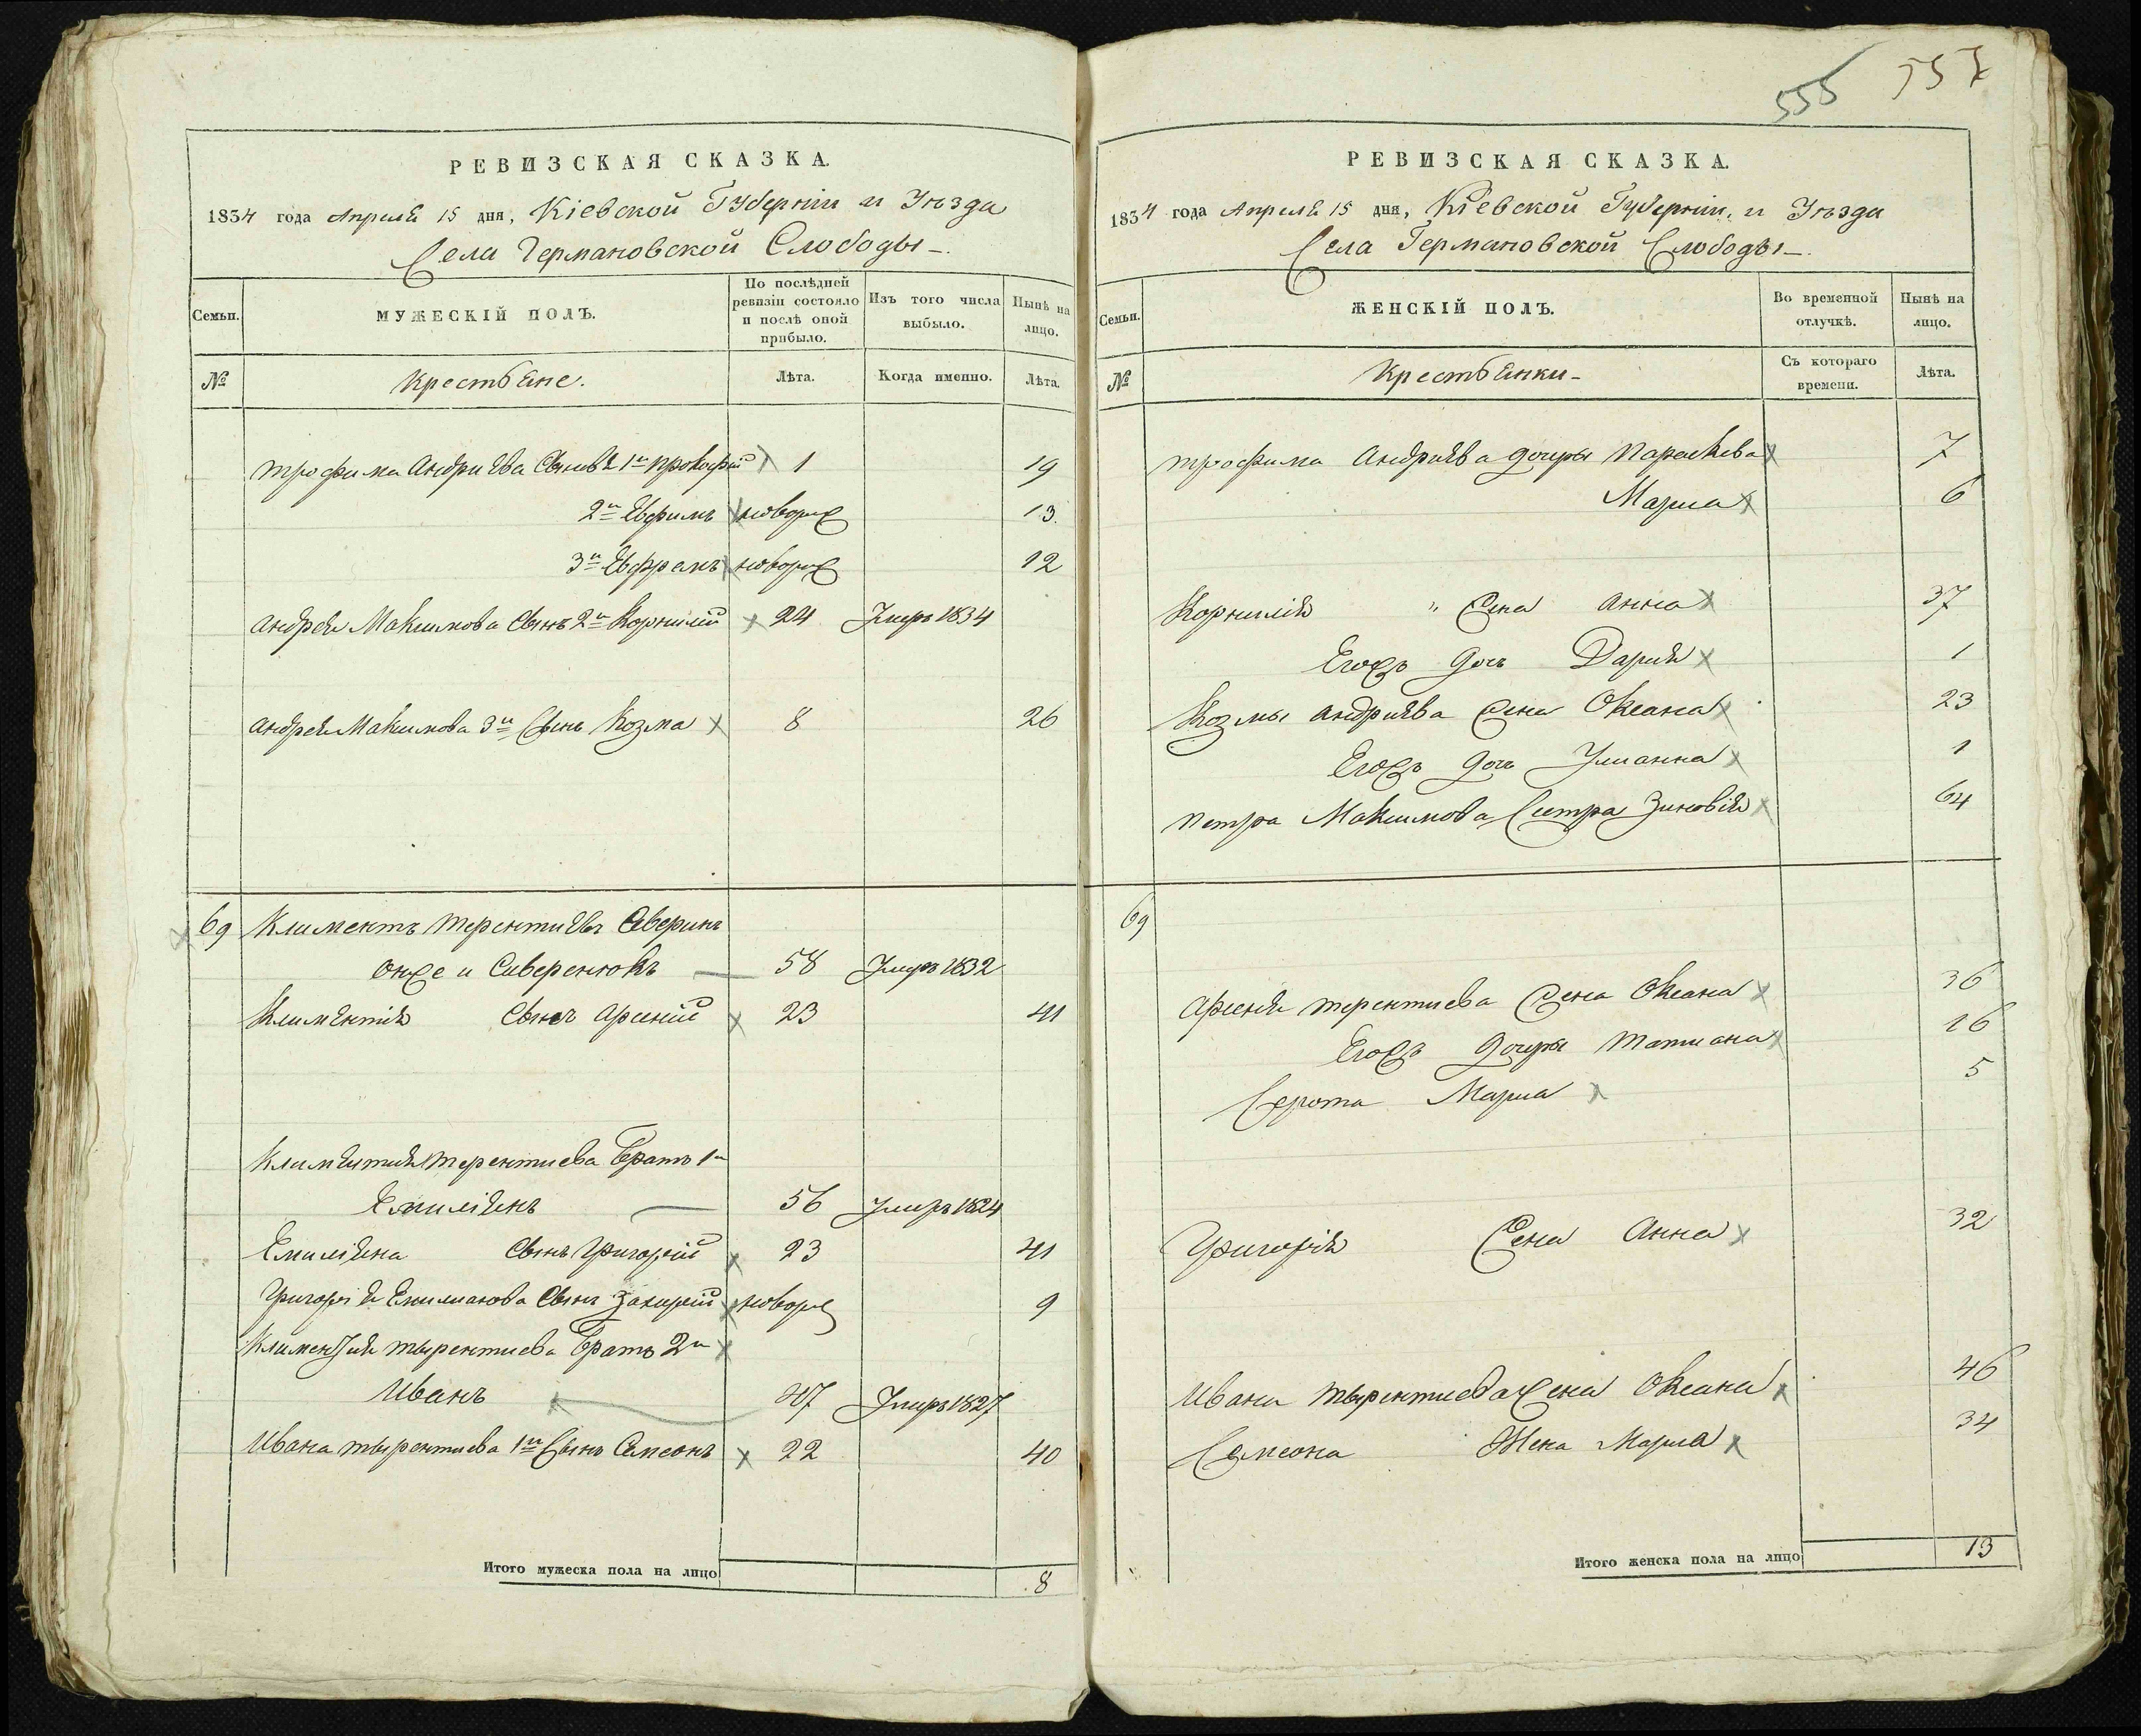 РЕВИЗСКАЯ СКАЗКА.
1834 года Апреля 15 дня, Кіевской Губерніи и Уѣзда
Села Германовской Слободы
Семьи.
МУЖЕСКІЙ ПОЛЪ.
По послѣдней ревизіи состояло и послѣ оной прибыло.
Изъ того числа выбыло.
Нынѣ на лицо.
№
Крестьяне.
Лѣта.
Когда именно.
Лѣта.
Трофима Андриева Сыновья 1й Прокофій 1 19
2й Евфимъ новорож 13.
3й Ефремъ новорож 12
Андрея Максимова Сынъ 2й Корнилій 24 Умеръ 1834
Андрея Максимова 3й Сынъ Козма 8 26
69 Климентъ Терентиевъ Северинъ
онже и Сиверенюкъ 58 Умеръ 1832
Климентія Сынъ Арсеній 23 41
Климентия Терентиева Братъ 1й
Емиліянъ 56 Умеръ 1824
Емиліяна Сынъ Григорій 23 41
Григорія Емилианова Сынъ Захарій новорож 9
Климентия Тырентиева Братъ 2й
Иванъ 47 Умеръ 1827
Ивана Тырентиева 1й Сынъ Семеонъ 22 40
Итого мужеска пола на лицо 8
555 557
РЕВИЗСКАЯ СКАЗКА.
1834 года Апреля 15 дня, Кіевской Губерніи, и Уѣзда
Села Германовской Слободы
Семьи.
ЖЕНСКІЙ ПОЛЪ.
Во временной отлучкѣ.
Нынѣ на лицо.
№
Крестьянки
Съ котораго времени.
Лѣта.
Трофима Андриева дочеры Параскева 7
Мариа 6
Корнилія " Жена Анна 37
Егожъ дочь Дария 1
Козмы Андриева Жена Оксана 23
Егожъ дочь Улианна 1
Петра Максимова Сестра Зиновія 64
69
Арсения Терентиева Жена Оксана 36
Егожъ дочеры Татиана 16
Сирота Мариа 5
Григорія Жена Анна 32
Ивана Тырентиева Жена Оксана 46
Семеона Жена Мариа 34
Итого женска пола на лицо 13